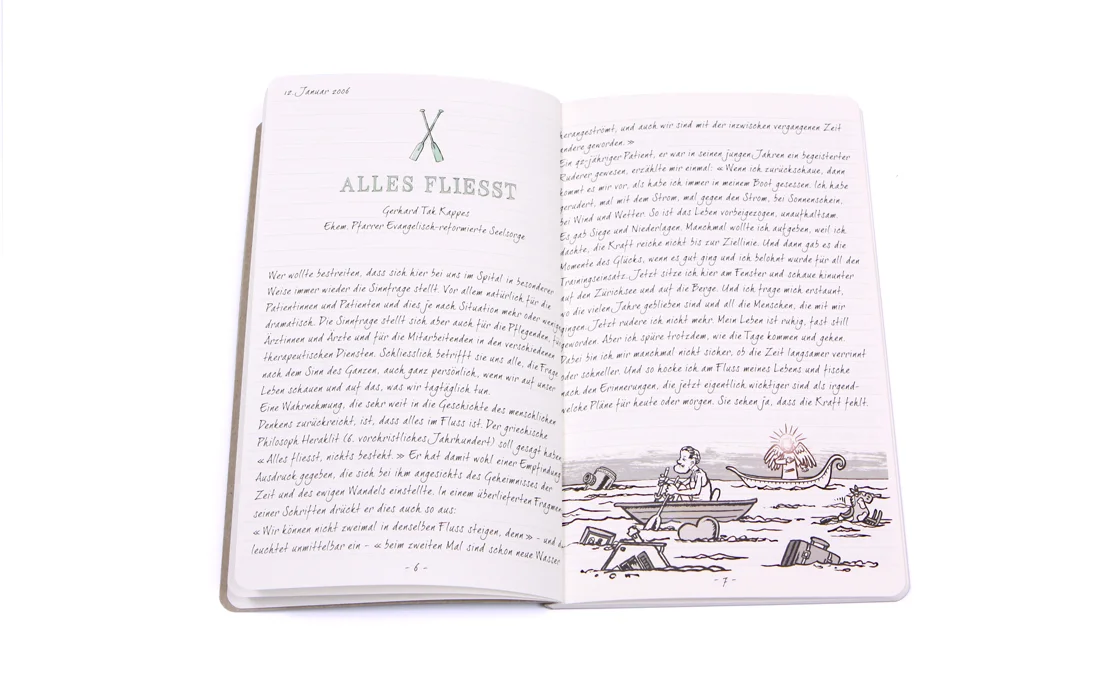 12. Januar 2006
ALLES FLIESST
Gerhard Tak Kappes
Ehem. Pfarrer Evangelisch-reformierte Seelsorge
Wer wollte bestreiten, dass sich hier bei uns im Spital in besonderer
Weise immer wieder die Sinnfrage stellt. Vor allem natürlich für die
Patientinnen und Patienten und dies je nach Situation mehr oder weniger
dramatisch. Die Sinnfrage stellt sich aber auch für die Pflegenden, für
Ärztinnen und Ärzte und für die Mitarbeitenden in den verschiedenen
therapeutischen Diensten. Schliesslich betrifft sie uns alle, die Frage
nach dem Sinn des Ganzen, auch ganz persönlich, wenn wir auf unser
Leben schauen und auf das, was wir tagtäglich tun.
Eine Wahrnehmung, die sehr weit in die Geschichte des menschlichen
Denkens zurückreicht, ist, dass alles im Fluss ist. Der griechische
Philosoph Heraklit (6. vorchristliches Jahrhundert) soll gesagt haben:
« Alles fliesst, nichts besteht. » Er hat damit wohl einer Empfindung
Ausdruck gegeben, die sich bei ihm angesichts des Geheimnisses der
Zeit und des ewigen Wandels einstellte. In einem überlieferten Fragment
seiner Schriften drückt er dies auch so aus:
« Wir können nicht zweimal in denselben Fluss steigen, denn » – und
leuchtet unmittelbar ein – « beim zweiten Mal sind schon neue Wasser
- 6 -
herangeströmt, und auch wir sind mit der inzwischen vergangenen Zeit
andere geworden. »
Ein 92-jähriger Patient, er war in seinen jungen Jahren ein begeisterter
Ruderer gewesen, erzählte mir einmal: « Wenn ich zurückschaue, dann
kommt es mir vor, als habe ich immer in meinem Boot gesessen. Ich habe
gerudert, mal mit dem Strom, mal gegen den Strom, bei Sonnenschein,
bei Wind und Wetter. So ist das Leben vorbeigezogen, unaufhaltsam.
Es gab Siege und Niederlagen. Manchmal wollte ich aufgeben, weil ich
dachte, die Kraft reiche nicht bis zur Ziellinie. Und dann gab es die
Momente des Glücks, wenn es gut ging und ich belohnt wurde für all den
Trainingseinsatz. Jetzt sitze ich hier am Fenster und schaue hinunter
auf den Zürichsee und auf die Berge. Und ich frage mich erstaunt,
wo die vielen Jahre geblieben sind und all die Menschen, die mit mir
gingen. Jetzt rudere ich nicht mehr. Mein Leben ist ruhig, fast still
geworden. Aber ich spüre trotzdem, wie die Tage kommen und gehen.
Dabei bin ich mir manchmal nicht sicher, ob die Zeit langsamer verrinnt
oder schneller. Und so hocke ich am Fluss meines Lebens und fische
nach den Erinnerungen, die jetzt eigentlich wichtiger sind als irgend-
welche Pläne für heute oder morgen. Sie sehen ja, dass die Kraft fehlt.
- 7 -